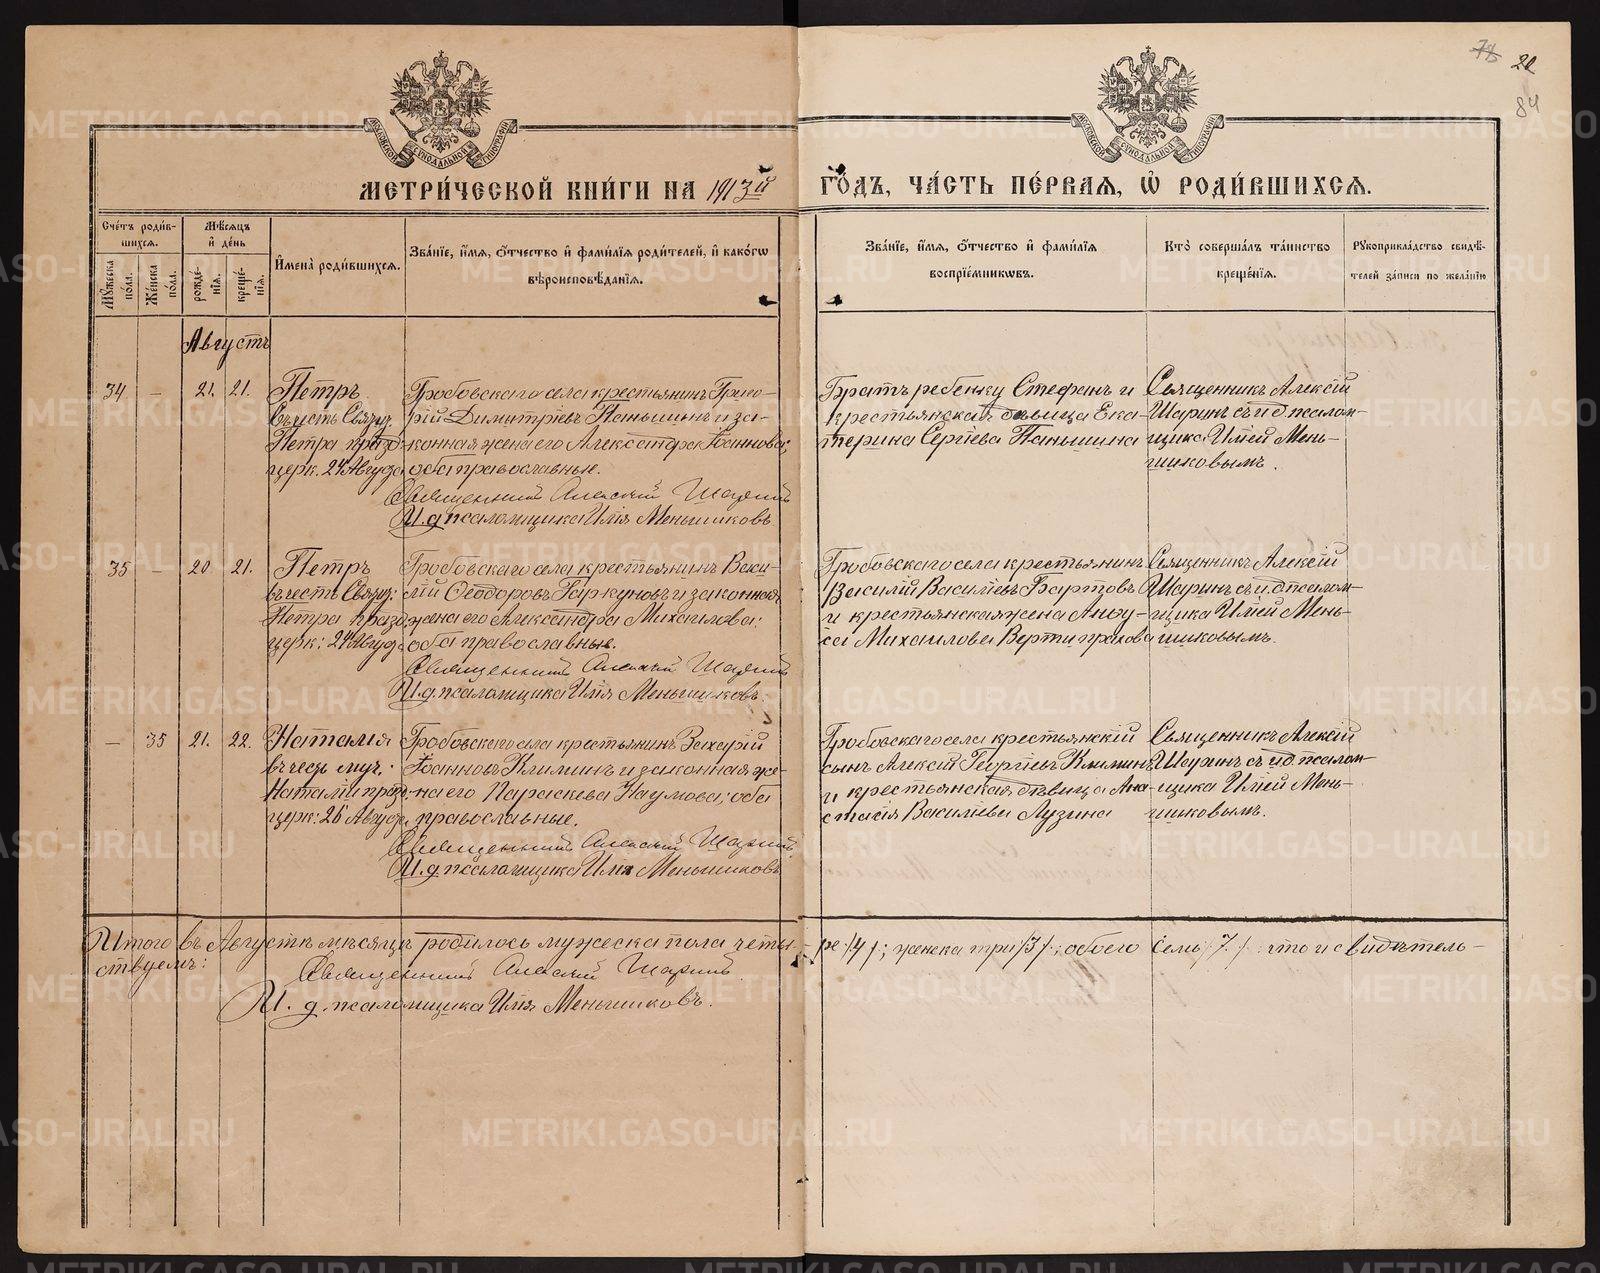 78 21
84
МОСКОВСКОЙ СѴНОДАЛЬНОЙ ТИПОГРАФІИ
МОСКОВСКОЙ СѴНОДАЛЬНОЙ ТИПОГРАФІИ
МЕТРИ́ЧЕСКОЙ КНИ́ГИ НА 1913й ГО́ДЪ, ЧА́СТЬ ПЕ́РВАѦ, Ѡ҆ РОДИ́ВШИХСѦ.
Сче́тъ роди́в-
шихсѧ.
Мꙋжеска по́ла.
Же́нска по́ла.
Мѣ́сѧцъ
и҆ де́нь
рожде́-
нїѧ.
креще́-
нїѧ.
И҆мена̀ роди́вшихсѧ.
Зва́нїе, и҆́мѧ, ѻ҆́тчество и҆ фами́лїѧ роди́телей, и҆ како́гѡ
вѣроисповѣ́данїѧ.
Зва́нїе, и҆́мѧ, ѻ҆́тчество и҆ фами́лїѧ
воспрїе́мникѡвъ.
Кто̀ соверша́лъ та́инство
креще́нїѧ.
Рꙋкоприкла́дство свидѣ́-
телей за́писи по жела́нїю
Августъ
34 – 21. 21.
Петръ
въ честь Святи.
Петра празд
церк. 24 Августа
Гробовскаго села крестьянинъ Григо-
рій Димитріевъ Паньшинъ и за-
конная жена его Александра Іоаннова,
оба православные.
Священникъ Алексій Шаринъ
И. д. псаломщика Илія Меньшиковъ
Братъ ребенку Стефанъ и
крестьянская дѣвица Ека-
терина Сергіева Паньшина
Священникъ Алексій
Шаринъ съ и д псалом-
щика Иліей Мень-
шиковымъ.
35 – 20 21.
Петръ
въ честь Святи:
Петра празд.
церк: 24 Августа
Гробовскаго села крестьянинъ Васи-
лій Ѳеодоровъ Гаркуновъ и законная
жена его Александра Михаилова:
оба православные.
Священникъ Алексій Шаринъ
И. д. псаломщика Илія Меньшиковъ.
Гробовскаго села крестьянинъ
Василій Василіевъ Бартовъ
и крестьянская жена Анфу-
са Михаилова Вертипрахова
Священникъ Алексій
Шаринъ съ и. д. псалом-
щика Иліей Мень-
шиковымъ.
– 35 21. 22.
Наталія
въ честь муч.
Наталіи празд.
церк: 26 Августа
Гробовскаго села крестьянинъ Захарій
Іоанновъ Климинъ и законная же-
на его Параскева Наумова; оба
православные.
Священникъ Алексій Шаринъ.
И. д. псаломщика Илія Меньшиковъ
Гробовскаго села крестьянскій
сынъ Алексій Георгіевъ Климинъ
и крестьянская дѣвица Ана-
стасія Василіева Лузина
Священникъ Алексій
Шаринъ съ и д. псалом-
щика Иліей Мень-
шиковымъ.
Итого въ Августѣ мѣсяцѣ родилось мужеска пола четы-ре /4/; женска три /3/; обоего семь /7/: что и свидѣтель-
ствуемъ:
Священникъ Алексій Шаринъ
И. д. псаломщика Илія Меньшиковъ.
METRIKI.GASO-URAL.RU